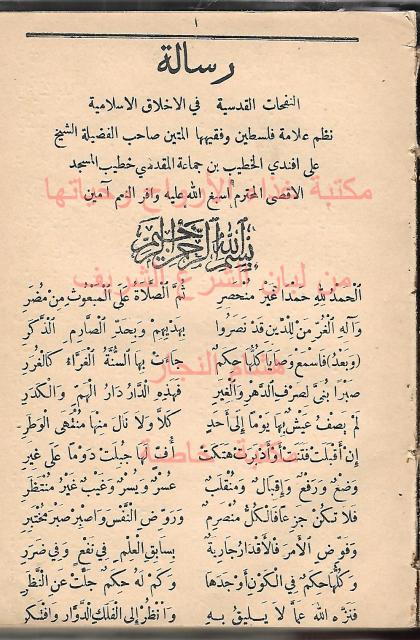 ١
رسالة
النفحات القدسية في الاخلاق الاسلامية
نظم علامة فلسطين وفقيهها المتين صاحب الفضيلة الشيخ
على افندي الخطيب بن جماعة المقدمي خطيب المسجد
الاقصى المحترم أسبغ الله عليه وافر النعم آمين
مكتبة غذاء الأرواح وحياتها
بسم الله الرحمن الرحيم
من لبان الشرع الشريف
اَلْحَمْدُ لِلهِ حَمْدًا غَيْرَ مُنْحَصِرِ ثُمَّ الصَّلَاةُ عَلَى الْمَبْعُوثِ مِنْ مُضَرِ
وَآلِهِ الْغُرِّ مَنْ لِلدِّينِ قَدْ نَصَرُوا بِهَدْيِهِمْ وَبِحَدِّ الصَّارِمِ الذَّكَرِ
(وَبَعْدُ) فَاسْمَعْ وَصَايَا كُلُّهَا حِكَمٌ جَاءَتْ بِهَا السُّنَّةُ الْغَرَّاءُ كَالْغُرَرِ
هشام النجار
صَبْرًا بُنَيَّ لِصَرْفِ الدَّهْرِ وَالْغِيَرِ فَهَذِهِ الدَّارُ دَارُ الْهَمِّ وَالْكَدَرِ
لَمْ يَصْفُ عَيْشٌ بِهَا يَوْمًا إِلَى أَحَدٍ كَلَّا وَلَا نَالَ مِنْهَا مُنْتَهَى الْوَطَرِ
إِنْ أَقْبَلَتْ فَتَنَتْ أَوْ أَدْبَرَتْ هَتَكَتْ أُفٍّ لَهَا جُبِلَتْ دَوْمًا عَلَى غِيَرِ
مكتبة خاصة
وَضْعٌ وَرَفْعٌ وَإِقْبَالٌ وَمُنْقَلَبٌ عُسْرٌ وَيُسْرٌ وَغَيْبٌ غَيْرُ مُنْتَظَرِ
فَلَا تَكُنْ جَزِعًا فَالْكُلُّ مُنْصَرِمٌ وَرَوِّضِ النَّفْسَ وَاصْبِرْ صَبْرَ مُخْتَبِرِ
وَفَوِّضِ الْأَمْرَ فَالْأَقْدَارُ جَارِيَةٌ بِسَابِقِ الْعِلْمِ فِي نَفْعٍ وَفِي ضَرَرِ
وَكُلُّهَا حِكَمٌ فِي الْكَوْنِ أَوْجَدَهَا وَكَمْ لَهُ حِكَمٌ جَلَّتْ عَنِ النَّظَرِ
فَنَزِّهِ اللهَ عَمَّا لَا يَلِيقُ بِهِ وَانْظُرْ إِلَى الْفَلَكِ الدَّوَّارِ وَافْتَكِرِ